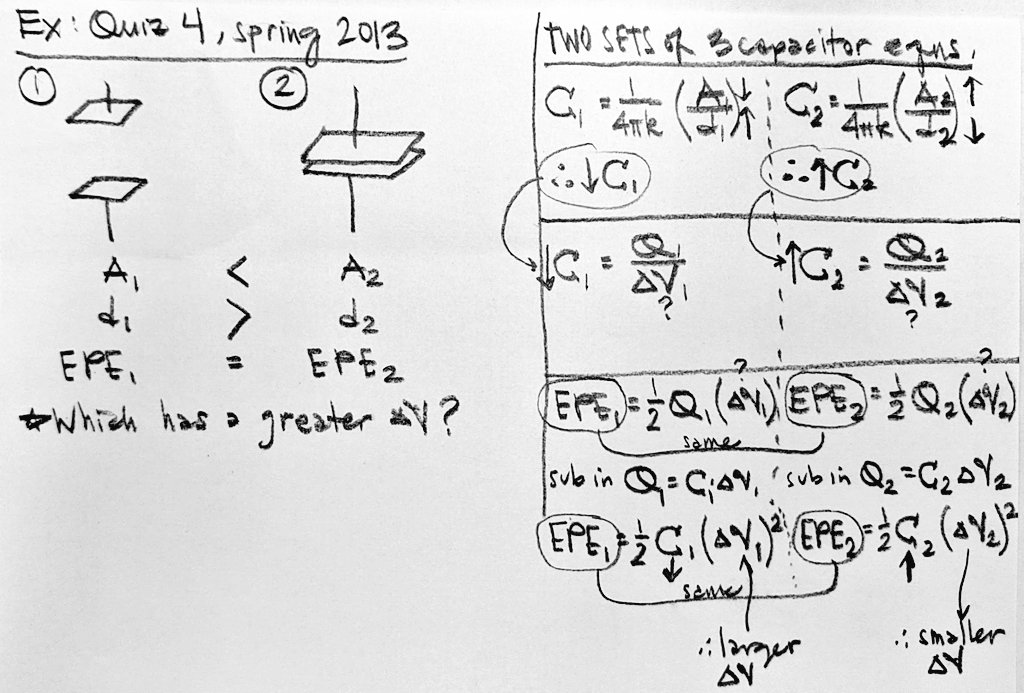 Ex: Quiz 4, spring 2013
① ②
A₁ < A₂
d₁ > d₂
EPE₁ = EPE₂
☆Which has a greater ΔV?
TWO SETS of 3 capacitor eqns.
C₁ = 1/4πk (A₁/d₁) ↓↑ C₂ = 1/4πk (A₂/d₂) ↑↓
∴ ↓C₁ ∴ ↑C₂
↓C₁ = Q₁/ΔV₁ ↑C₂ = Q₂/ΔV₂
? ?
? ?
EPE₁ = ½ Q₁ (ΔV₁) EPE₂ = ½ Q₂ (ΔV₂)
same
sub in Q₁ = C₁ΔV₁ sub in Q₂ = C₂ΔV₂
EPE₁ = ½ C₁ (ΔV₁)² EPE₂ = ½ C₂ (ΔV₂)²
↓ ↑
same
∴ larger ∴ smaller
ΔV ΔV